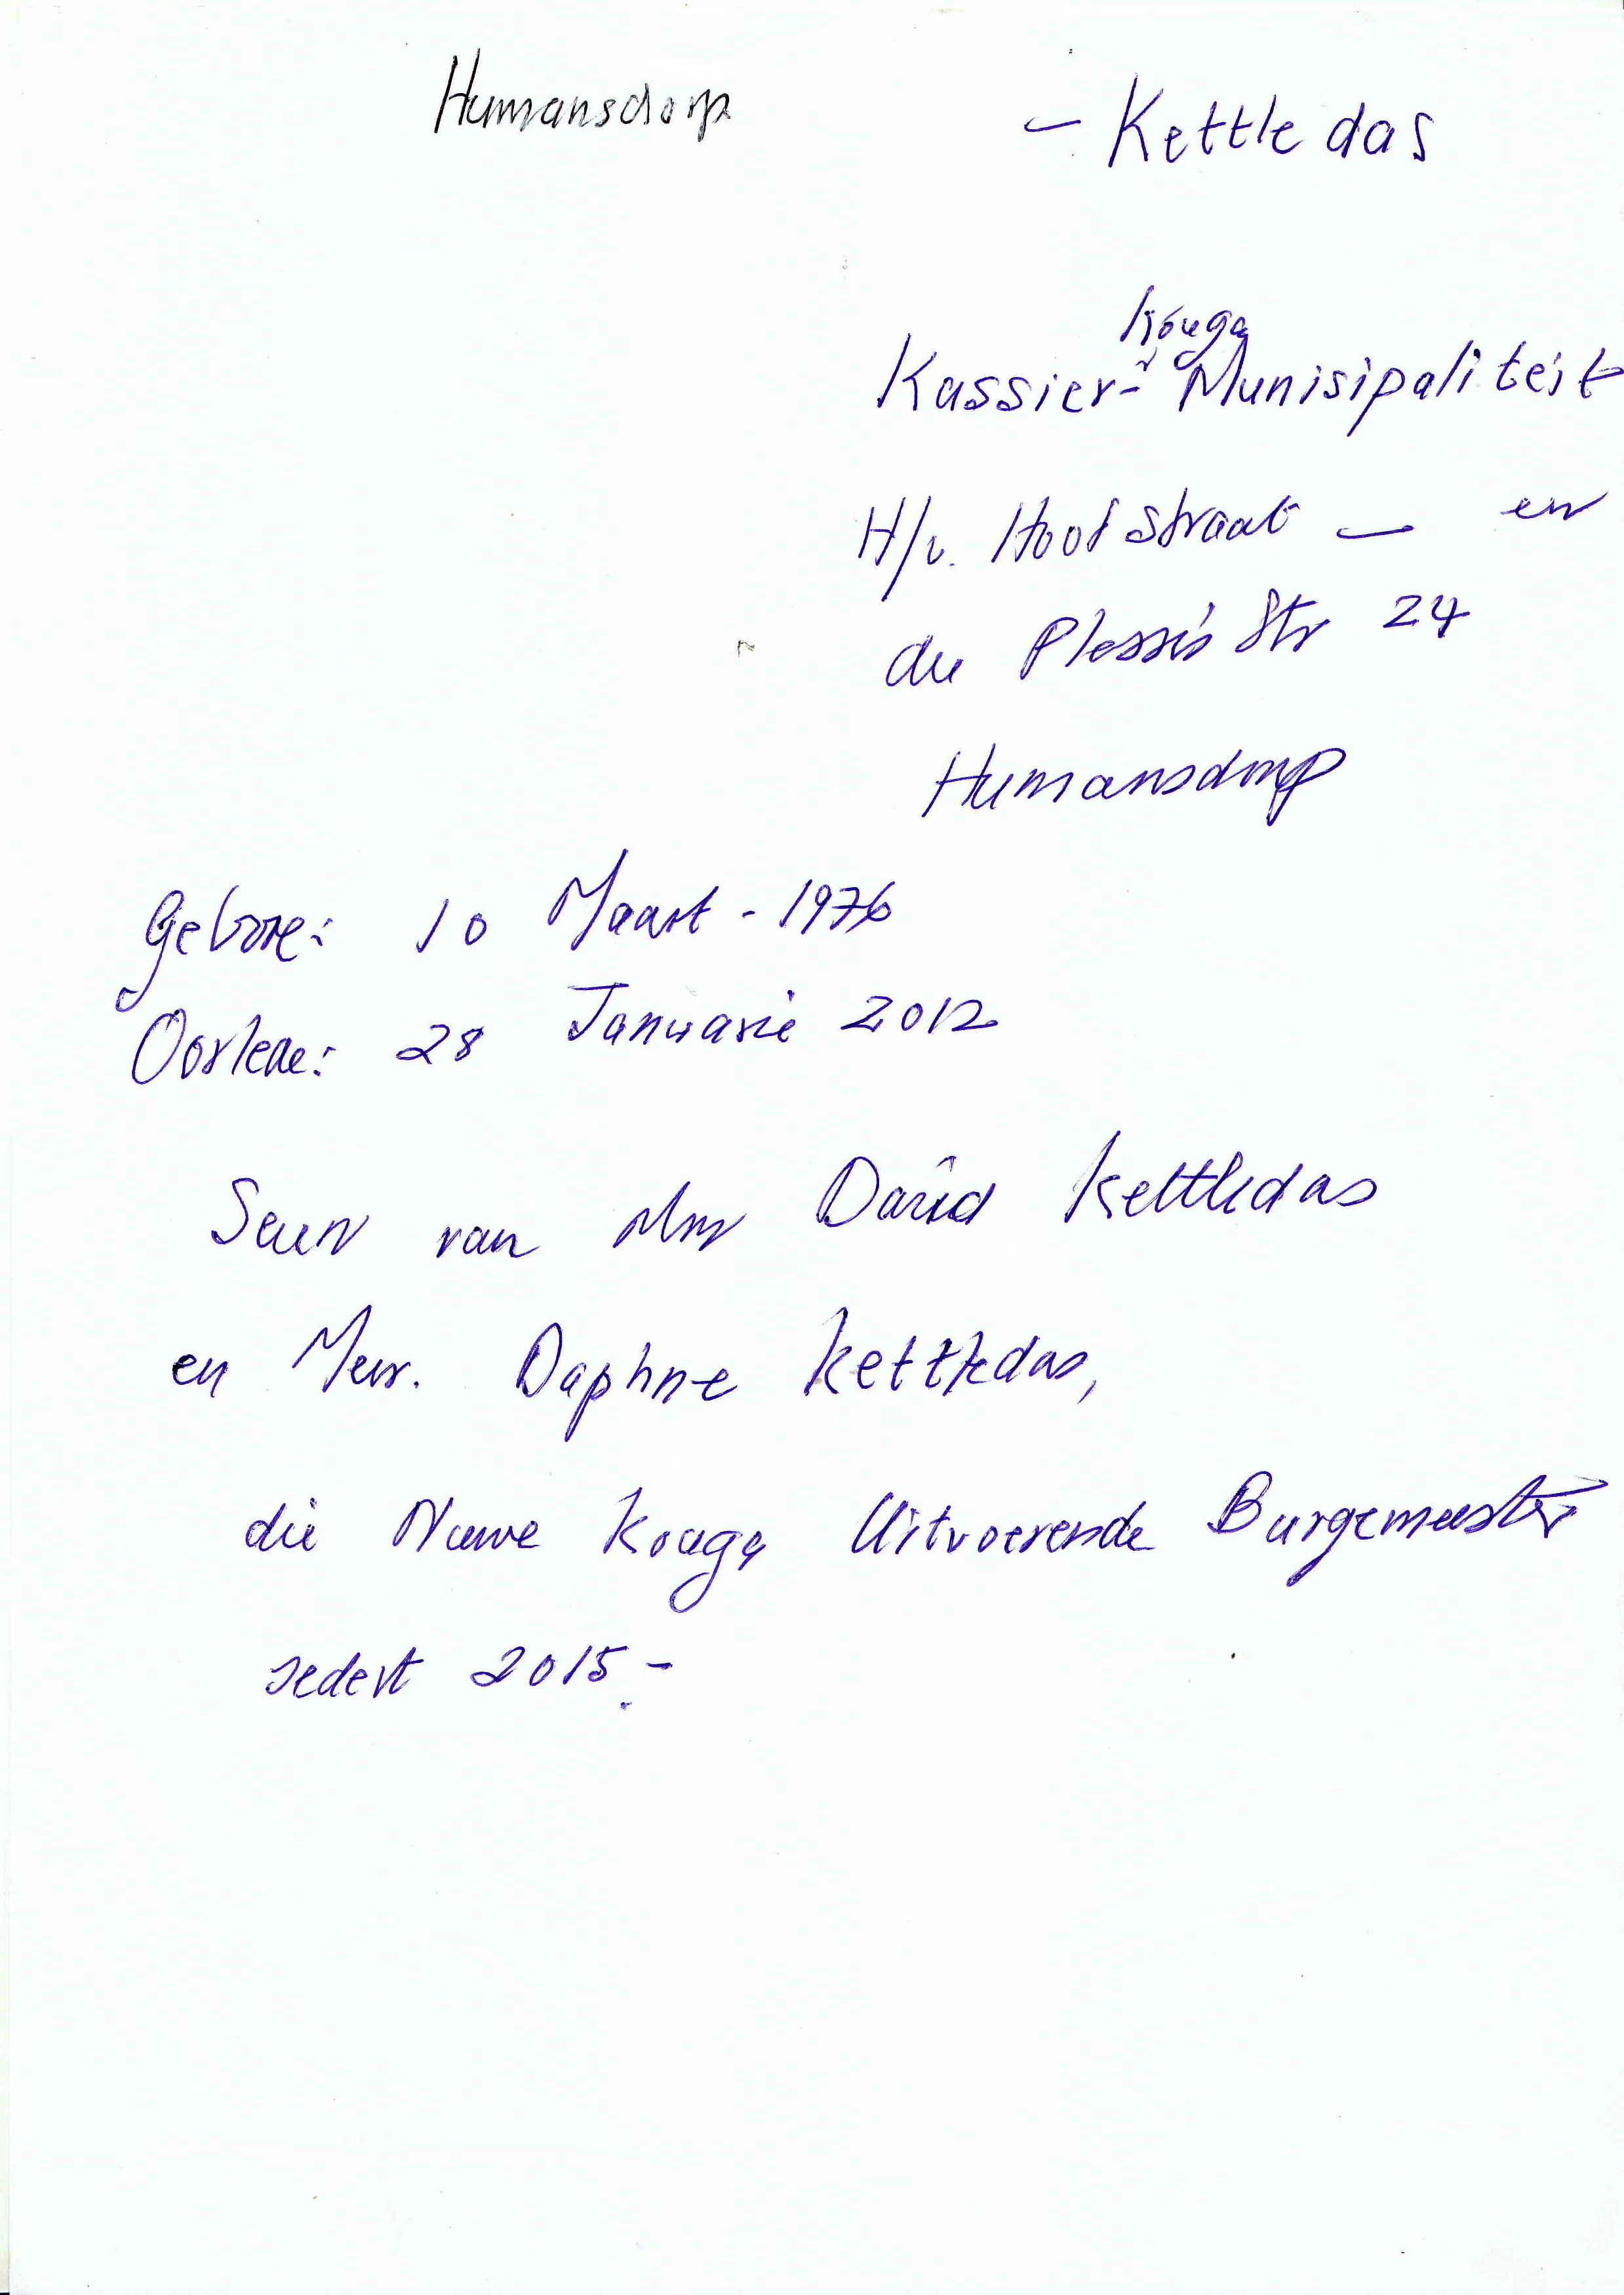 Humansdorp
- Kettledas
Kouga
Kassier - Munisipaliteit
H/v. Hoofstraat - en
du Plessis Str 24
Humansdorp
Gebore: 10 Maart - 1976
Oorlede: 28 Januarie 2012
Seun van Mnr David Kettledas
en Mev. Daphne Kettledas,
die Nuwe Kouga Uitvoerende Burgemeester
sedert 2015.-